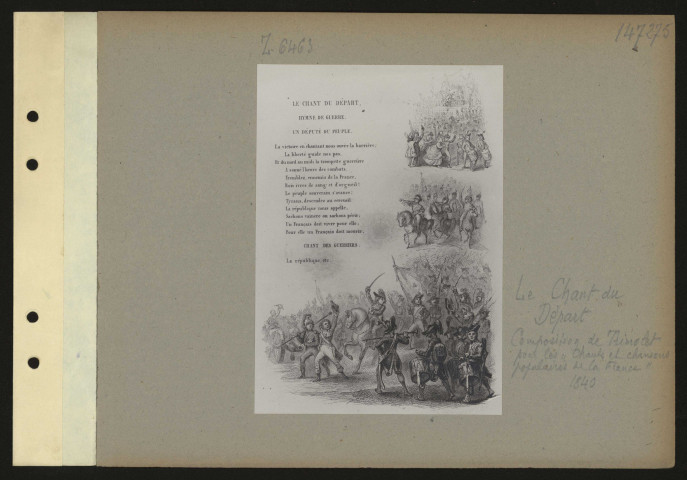 Z 6463
147275
LE CHANT DU DÉPART,
HYMNE DE GUERRE.
UN DÉPUTÉ DU PEUPLE.
La victoire en chantant nous ouvre la barrière;
La liberté guide nos pas,
Et du nord au midi la trompette guerrière
A sonné l'heure des combats.
Tremblez, ennemis de la France,
Rois ivres de sang et d'orgueil!
Le peuple souverain s'avance;
Tyrans, descendez au cercueil!
La république nous appelle,
Sachons vaincre ou sachons périr;
Un Français doit vivre pour elle;
Pour elle un Français doit mourir.
CHANT DES GUERRIERS.
La république, etc.
Le Chant du
Départ
Composition de
pour les "Chants et chansons
populaires de la France"
1842